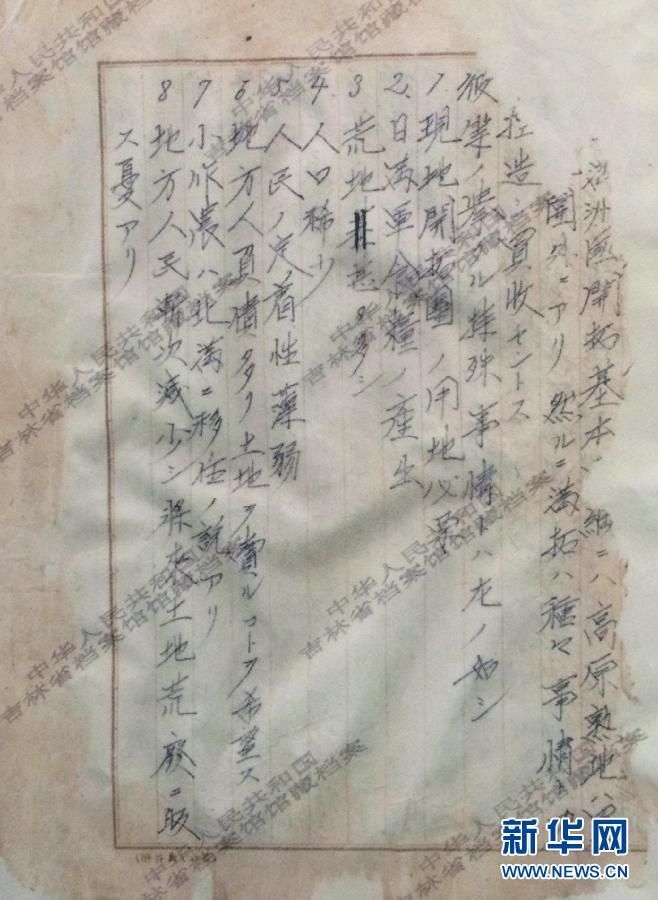 満洲国開拓基本 ニハ高原熟地ハ
圏外ニアリ然ルニ満拓ハ種々事情ヲ
捏造シ買収セントス
彼等ノ挙クル特殊事情トハ左ノ如シ
1.現地開拓團ノ用地必要
2.日満軍食糧ノ産出
3荒地 多シ
4.人口稀少
5.人民ノ定着性薄弱
6地方人負債多ク土地ヲ賣ルコトヲ希望ス
7小作農ハ北満ニ移住ノ説アリ
8地方人民漸次減少シ将来土地荒廃ニ帰
ス憂アリ
中华人民共和国
吉林省档案馆馆藏档案
中华人民共和国
吉林省档案馆馆藏档案
中华人民共和国
吉林省档案馆馆藏档案
中华人民共和国
吉林省档案馆馆藏档案
中华人民共和国
吉林省档案馆馆藏档案
中华人民共和国
吉林省档案馆馆藏档案
新华网
NEWS.CN